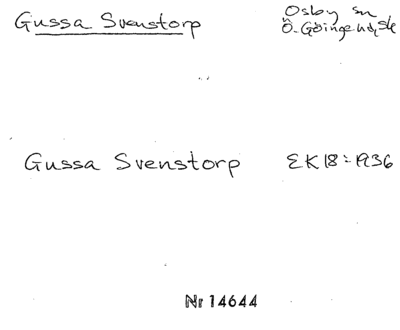 Gussa Svenstorp
Osby sn
Ö. Göinge hd, Sk
Gussa Svenstorp EK 18: 1936
Nr 14644